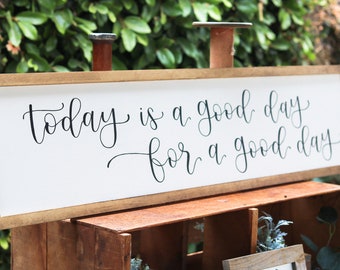 today is a good day
for a good day